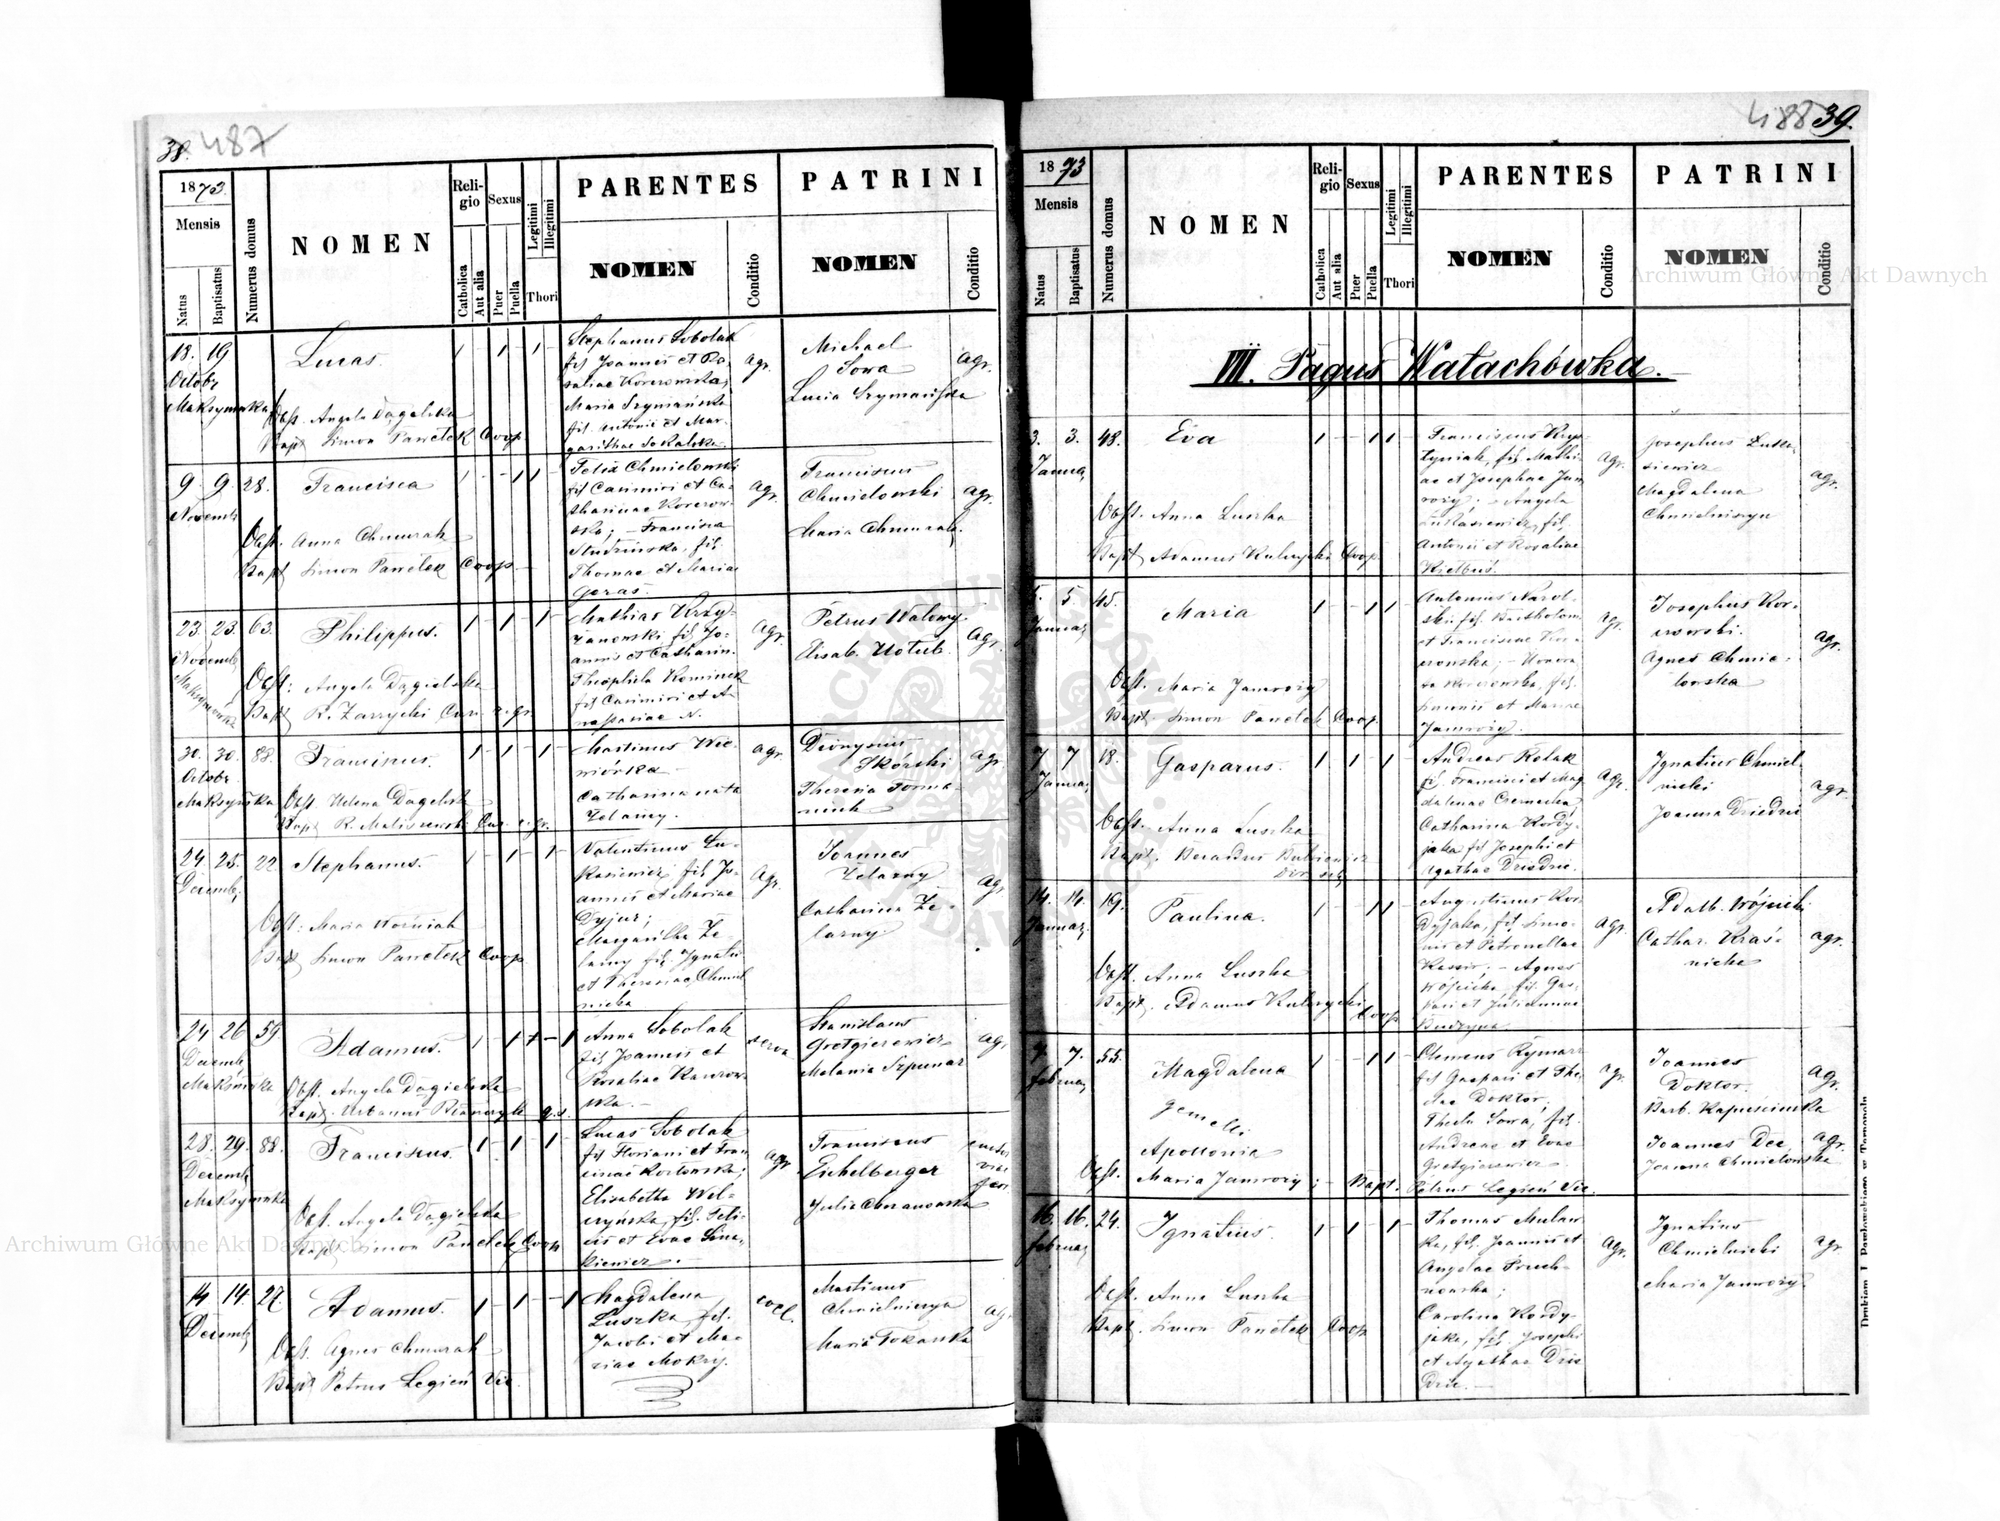 38. 487
1873
Mensis
Natus
Baptisatus
Numerus domus
NOMEN
Religio
Catholica
Aut alia
Sexus
Puer
Puella
Legitimi
Illegitimi
Thori
PARENTES
NOMEN
Conditio
PATRINI
NOMEN
Conditio
18. 19
Octobr
Maksymówka
Lucas.
Obst. Angela Dągielska
Bapt Simon Panełek Coop
Stephanus Sobolak
fil Joannis et Ro-
saliae Korczowska,
Maria Szymańska
fil. Antonii et Mar-
garithae Sokalska.
agr.
Michael
Sowa
Lucia Szymańska
agr.
9. 9. 28.
Novemb
Francisca
Obst. Anna Chmurak
Bapt Simon Panełek Coop.
Felix Chmielowski
fil Casimiri et Ca-
tharinae Korczow-
ska; - Francisca
Studzińska, fil.
Thomae et Mariae
Geras.
agr.
Franciscus
Chmielowski
Maria Chmurak.
agr.
23. 23. 63.
Novemb
Maksymówka
Philippus.
Obst: Angela Dągielska
Bapt R. Zarzycki Cur. r. gr.
Mathias Krzy-
żanowski fil Jo-
annis et Catharin.
Theophila Kominek
fil Casimiri et A-
nastasiae N.
agr.
Petrus Walowy.
Elisab. Hołub.
agr.
30. 30. 88.
Octobr.
Franciscus.
Obst Helena Dagelska
Bapt R. Maliszewski Cur. r. gr.
Martinus Wie-
wiórka
Catharina nata
Żelazny.
agr.
Dionysius
Skórski
Theresia Forma-
niuk
agr.
24 25. 22.
Decemb,
Stephanus.
Obst: Maria Woźniak
Bapt Simon Panełek Coop.
Valentinus Łu-
kasiewicz fil Jo-
annis et Mariae
Dyjur;
Margaritha Że-
lazny fil. Ignatii
et Theresiae Chmiel
nicka
agr.
Joannes
Żelazny
Catharina Że-
lazny
agr.
24 26 59.
Decemb,
Adamus.
Obst. Angela Dągielska
Anna Sobolak
fil Joannis et
Rosaliae Karczow-
ska.
serva
Stanislaus
Gretgierewicz
Melania Szpunar
agr.
28. 29. 88.
Decemb
Maksymówka
Franciscus.
Obst. Angela Dągielska
Bapt Simon Panełek Coop
Lucas Sobolak
fil Floriani et Fran
ciscae Kozłowska;
Elisabetha Wol-
czyńska, fil. Feli-
cis et Evae Sien-
kiewicz.
agr.
Franciscus
Eichelberger
Julia Chrzanowska
14 14. 27.
Decemb,
Adamus.
Obst. Agnes Chmurak
Bapt Petrus Legień Vic.
Magdalena
Luszka, fil.
Jacobi et Ma-
riae Mokry.
Martinus
Chmielniczyn
Maria Tokarska
agr.
488 39.
1873
Mensis
Natus
Baptisatus
Numerus domus
NOMEN
Religio
Catholica
Aut alia
Sexus
Puer
Puella
Legitimi
Illegitimi
Thori
PARENTES
NOMEN
Conditio
PATRINI
NOMEN
Conditio
VII. Pagus Wałachówka.
3. 3. 48.
Janua,
Eva
Obst. Anna Luszka
Bapt Adamus Kulczycki Coop.
Franciscus Krys-
tyniak, fil. Mathi-
ae et Josephae Jam
roży; - Angela
Łukasiewicz, fil.
Antonii et Rosaliae
Kiełbus.
agr.
Josephus Łuka-
siewicz
Magdalena
Chmielniczyn
agr.
5. 5 45.
Januar,
Maria
Obst. Maria Jamroży
Bapt. Simon Panełek Coop.
Antonius Narol-
ski. fil. Bartholom
et Franciscae Kor-
czowska; - Honora
ta Korczowska, fil.
Simonis et Mariae
Jamroży.
agr.
Josephus Kor-
czowski.
Agnes Chmie-
lowska
agr.
7 7 18.
Janua,
Gasparus.
Obst. Anna Luszka
Andreas Rolak
fil. Francisci et Mag
dalenae Czernecka
Catharina Kordy-
jaka fil Josephi et
Agathae Dziedzic.
agr.
Ignatius Chmiel
nicki
Joanna Dziedzic
agr.
14. 14. 19.
Januar,
Paulina.
Obst. Anna Luszka
Bapt. Adamus Kulczycki
Coop
Augustinus Kor
dyjaka, fil. Simo-
nis et Petronellae
Kassir; - Agnes
Wójcicka fil. Gas-
pari et Juliannae
Budzyna
agr.
Adalb. Wójcicki
Cathar. Kraś-
nicka
agr.
7. 7. 55.
Februa,
Magdalena
gemelli
Apollonia
Obst. Maria Jamroży; - Bapt. Petrus Legień Vic.
Clemens Rymarz
fil Gaspari et The
clae Doktor;
Thecla Sowa, fil.
Andreae et Evae
Gretgierewicz.
agr.
Joannes
Doktor.
Barb. Kapuścinska
Joannes Dec
Joanna Chmielowska
agr.
agr.
16. 16. 24.
Februa,
Ignatius.
Obst. Anna Luszka
Bapt. Simon Panełek Coop
Thomas Mular-
ka, fil. Joannis et
Angelae Pruch-
nowska;
Carolina Kordy-
jaka, fil. Josephi
et Agathae Dzie
dzic.
agr.
Ignatius
Chmielnicki
Maria Jamroży
agr.
Drukiem J. Pawłowskiego w Tarnopolu
Archiwum Główne Akt Dawnych
Archiwum Główne Akt Dawnych
ARCHIWUM GŁÓWNE AKT DAWNYCH